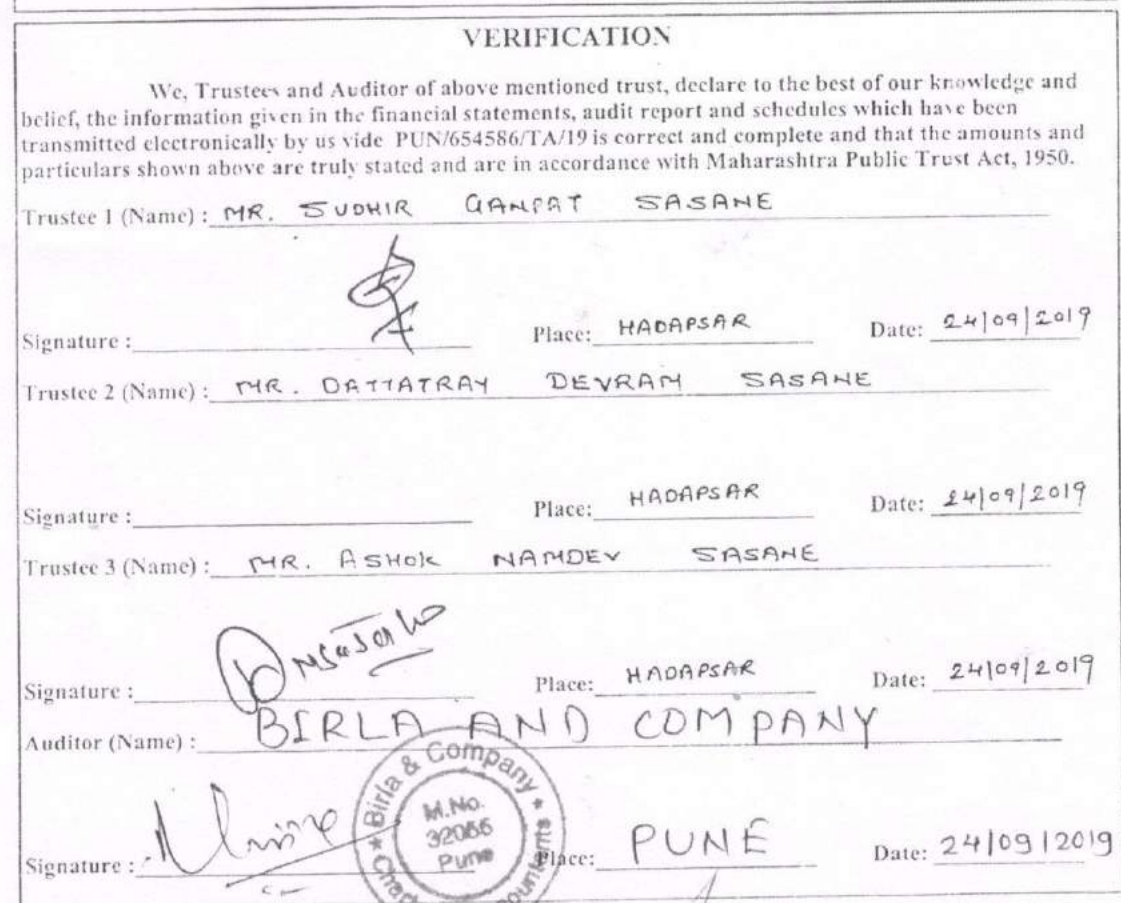 VERIFICATION
We, Trustees and Auditor of above mentioned trust, declare to the best of our knowledge and
belief, the information given in the financial statements, audit report and schedules which have been
transmitted electronically by us vide PUN/654586/TA/19 is correct and complete and that the amounts and
particulars shown above are truly stated and are in accordance with Maharashtra Public Trust Act, 1950.
Trustee 1 (Name) : MR. SUDHIR GANPAT SASANE
Signature : Place: HADAPSAR Date: 24/09/2019
Trustee 2 (Name) : MR. DATTATRAY DEVRAM SASANE
Signature : Place: HADAPSAR Date: 24/09/2019
Trustee 3 (Name) : MR. ASHOK NAMDEV SASANE
Signature : Place: HADAPSAR Date: 24/09/2019
Auditor (Name) : BIRLA AND COMPANY
Birla & Company
M.No.
32066
Pune
Signature : Place: PUNE Date: 24/09/2019